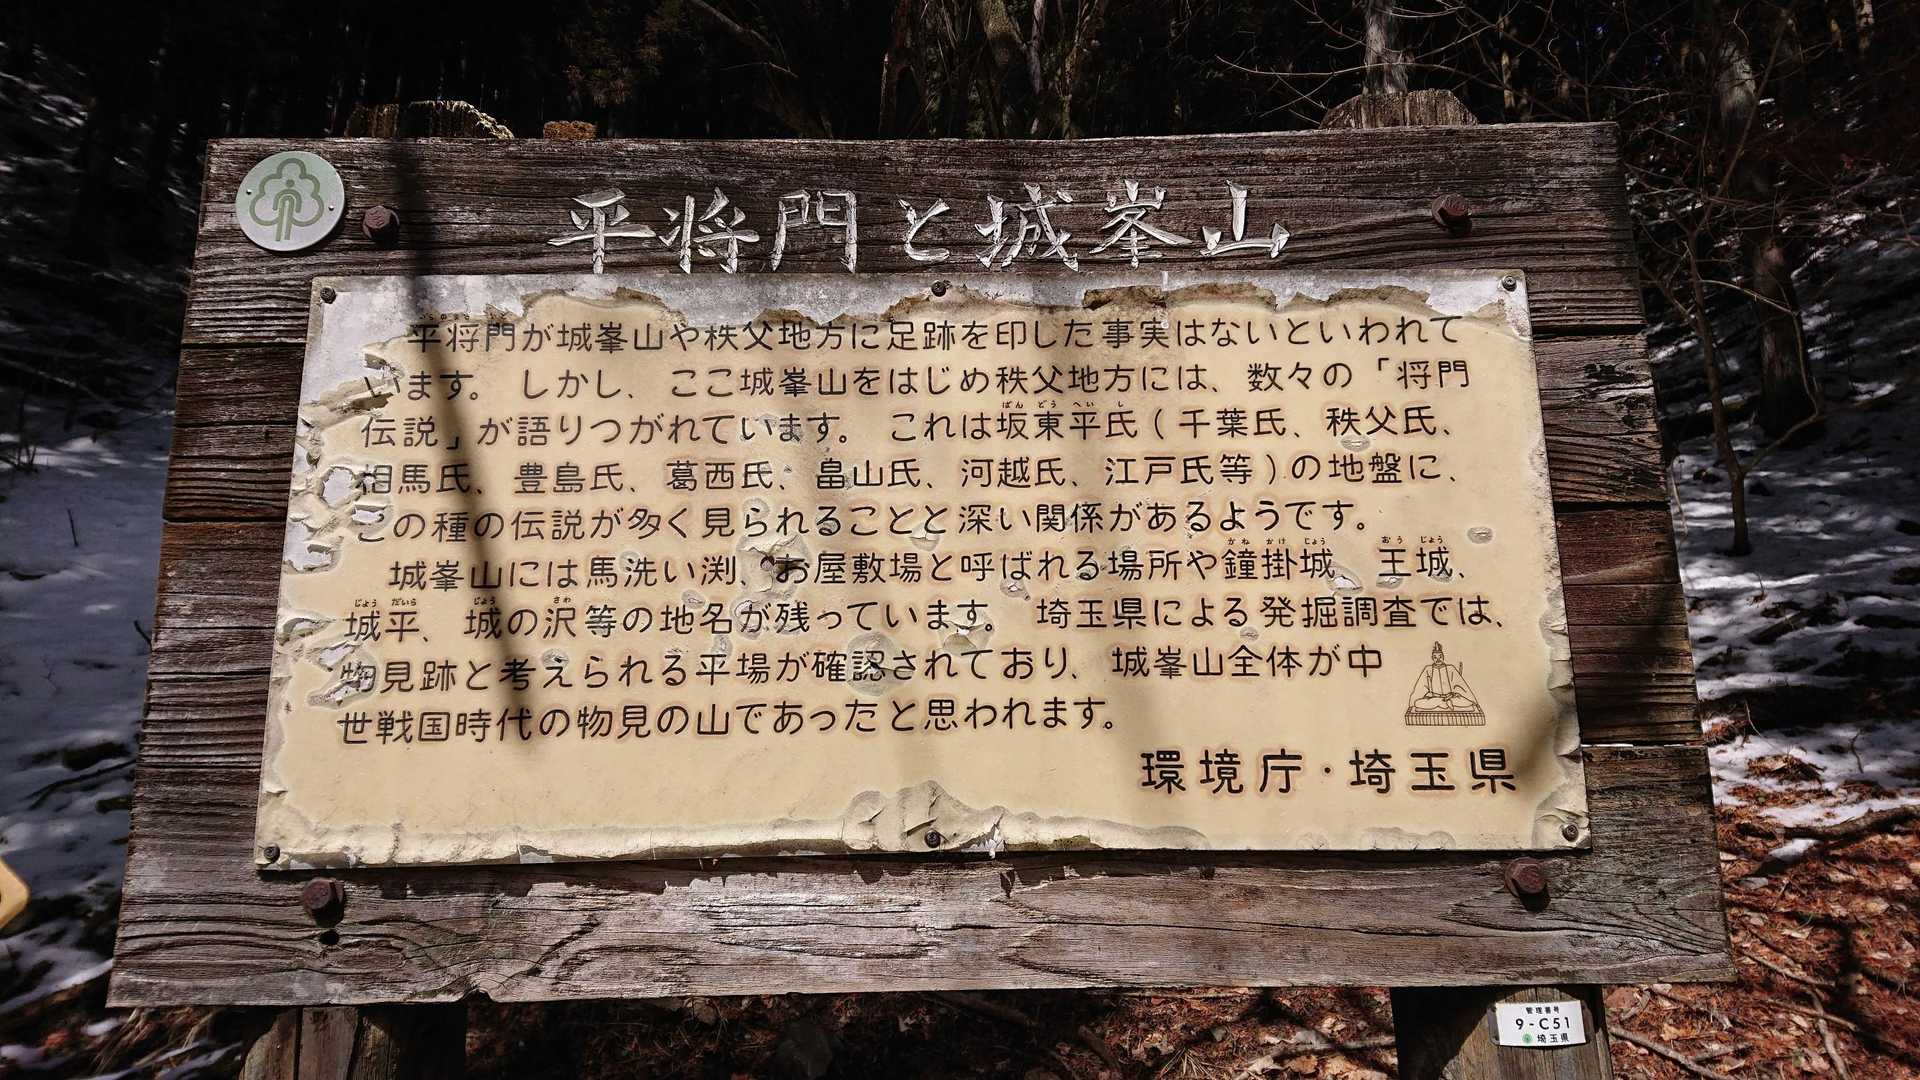 平将門と城峯山
平将門が城峯山や秩父地方に足跡を印した事実はないといわれて
います。しかし、ここ城峯山をはじめ秩父地方には、数々の「将門
伝説」が語りつがれています。これは坂東平氏(千葉氏、秩父氏、
相馬氏、豊島氏、葛西氏、畠山氏、河越氏、江戸氏等)の地盤に、
この種の伝説が多く見られることと深い関係があるようです。
城峯山には馬洗い渕、お屋敷場と呼ばれる場所や鐘掛城、王城、
城平、城の沢等の地名が残っています。埼玉県による発掘調査では、
物見跡と考えられる平場が確認されており、城峯山全体が中
世戦国時代の物見の山であったと思われます。
環境庁・埼玉県
管理番号
9-C51
埼玉県